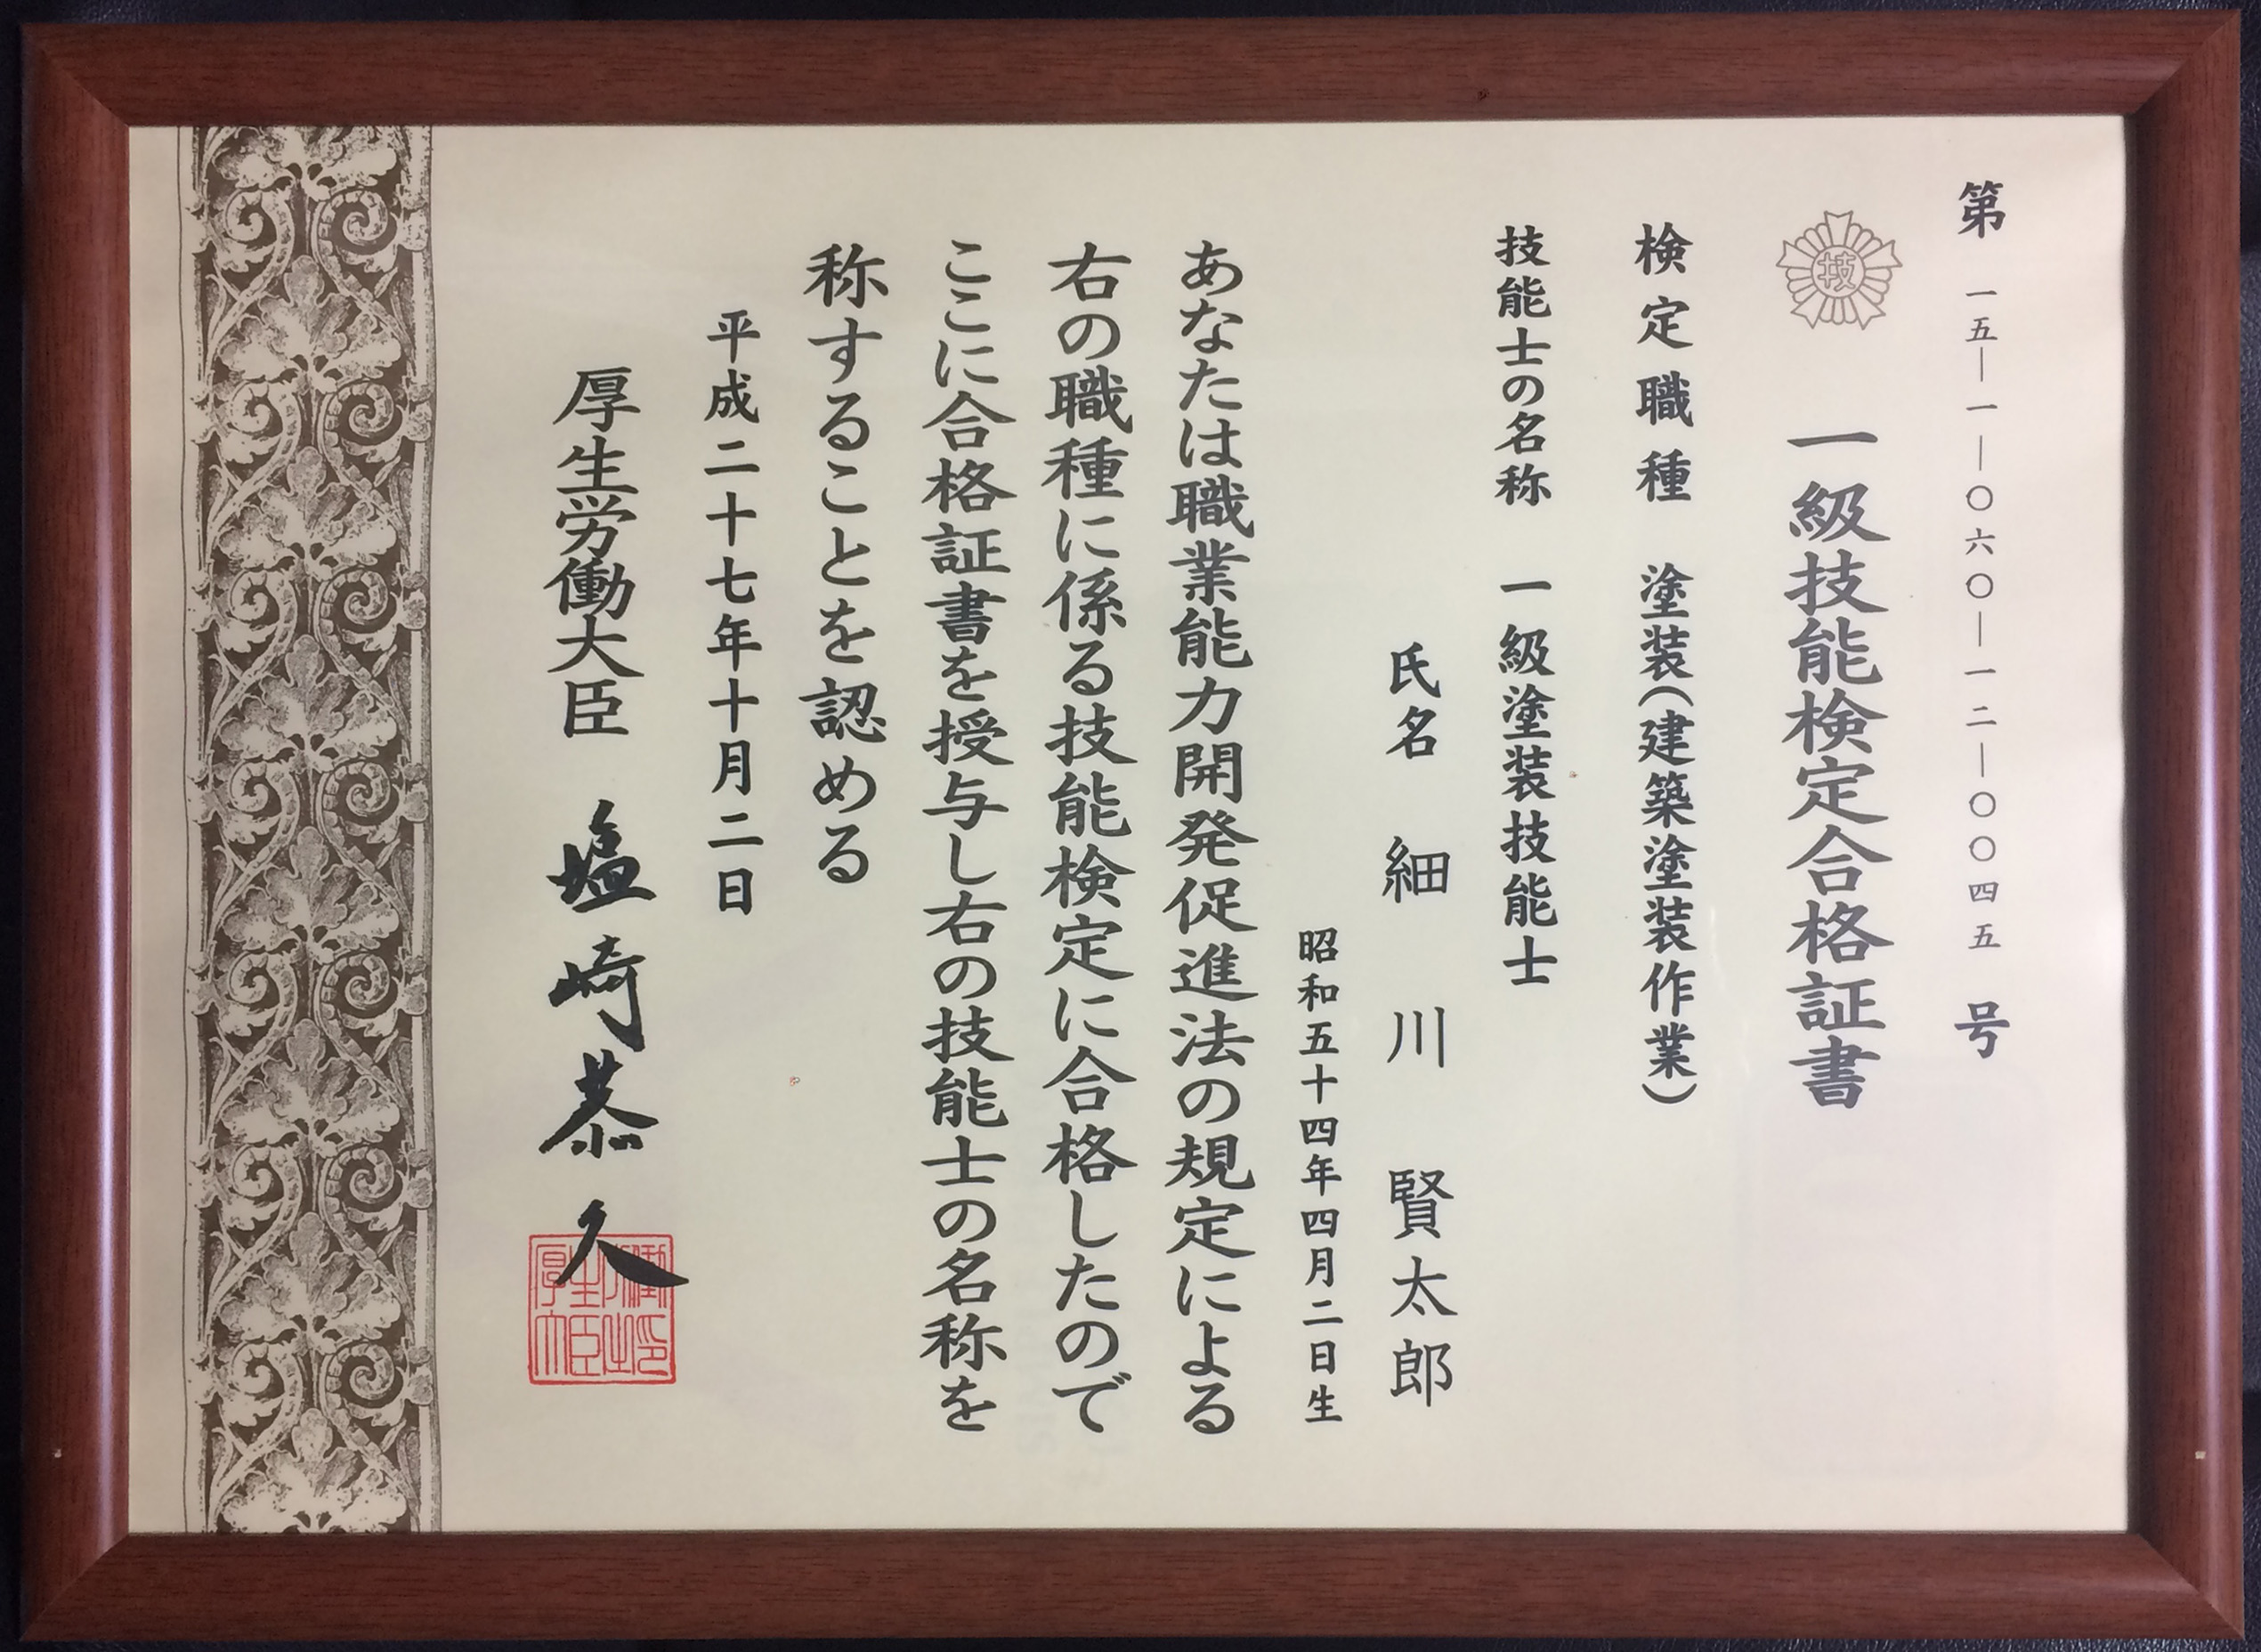 第一五―一―〇六〇―一二―〇〇四五号
技
一級技能検定合格証書
検定職種 塗装(建築塗装作業)
技能士の名称 一級塗装技能士
氏名 細川 賢太郎
昭和五十四年四月二日生
あなたは職業能力開発促進法の規定による
右の職種に係る技能検定に合格したので
ここに合格証書を授与し右の技能士の名称を
称することを認める
平成二十七年十月二日
厚生労働大臣 塩崎恭久
厚生労働大臣之印